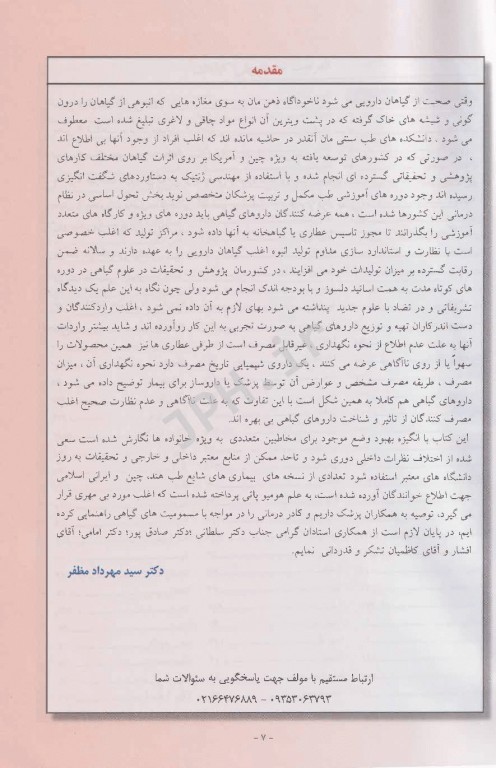 مقدمه
وقتی صحبت از گیاهان دارویی می شود ناخودآگاه ذهن مان به سوی مغازه هایی که انبوهی از گیاهان را درون
گونی و شیشه های خاک گرفته که در پشت ویترین آن انواع مواد چاقی و لاغری تبلیغ شده است معطوف
می شود . دانشکده های طب سنتی مان آنقدر در حاشیه مانده اند که اغلب افراد از وجود آنها بی اطلاع اند
. در صورتی که در کشورهای توسعه یافته به ویژه چین و آمریکا بر روی اثرات گیاهان مختلف کارهای
پژوهشی و تحقیقاتی گسترده ای انجام شده و با استفاده از مهندسی ژنتیک به دستاوردهای شگفت انگیزی
رسیده اند وجود دوره های آموزشی طب مکمل و تربیت پزشکان متخصص نوید بخش تحول اساسی در نظام
درمانی این کشورها شده است ، همه عرضه کنندگان داروهای گیاهی باید دوره های ویژه و کارگاه های متعدد
آموزشی را بگذرانند تا مجوز تاسیس عطاری یا گیاهخانه به آنها داده شود ، مراکز تولید که اغلب خصوصی
است با نظارت و استاندارد سازی مداوم تولید انبوه اغلب گیاهان دارویی را به عهده دارند و سالانه ضمن
رقابت گسترده بر میزان تولیدات خود می افزایند ، در کشورمان پژوهش و تحقیقات در علوم گیاهی در دوره
های کوتاه مدت به همت اساتید دلسوز و با بودجه اندک انجام می شود ولی چون نگاه به این علم یک دیدگاه
تشریفاتی و در تضاد با علوم جدید پنداشته می شود بهای لازم به آن داده نمی شود . اغلب واردکنندگان و
دست اندرکاران تهیه و توزیع داروهای گیاهی به صورت تجربی به این کار روآورده اند و شاید بیشتر واردات
آنها به علت عدم اطلاع از نحوه نگهداری ، غیرقابل مصرف است از طرفی عطاری ها نیز همین محصولات را
سهواً یا از روی ناآگاهی عرضه می کنند . یک داروی شیمیایی تاریخ مصرف دارد نحوه نگهداری آن ، میزان
مصرف ، طریقه مصرف مشخص و عوارض آن توسط پزشک یا داروساز برای بیمار توضیح داده می شود ،
داروهای گیاهی هم کاملا به همین شکل است با این تفاوت که به علت ناآگاهی و عدم نظارت صحیح اغلب
مصرف کنندگان از تاثیر و شناخت داروهای گیاهی بی بهره اند.
این کتاب با انگیزه بهبود وضع موجود برای مخاطبین متعددی به ویژه خانواده ها نگارش شده است سعی
شده از اختلاف نظرات داخلی دوری شود و تاحد ممکن از منابع معتبر داخلی و خارجی و تحقیقات به روز
دانشگاه های معتبر استفاده شود تعدادی از نسخه های بیماری های شایع طب هند، چین و ایرانی اسلامی
جهت اطلاع خوانندگان آورده شده است، به علم هومیو پاتی پرداخته شده است که اغلب مورد بی مهری قرار
می گیرد، توصیه به همکاران پزشک داریم و کادر درمانی را در مواجه با مسمومیت های گیاهی راهنمایی کرده
ایم، در پایان لازم است از همکاری استادان گرامی جناب دکتر سلطانی ؛دکتر صادق پور؛ دکتر امامی؛ آقای
افشار و آقای کاظمیان تشکر و قدردانی نمایم.
دکتر سید مهرداد مظفر
ارتباط مستقیم با مولف جهت پاسخگویی به سئوالات شما
۰۹۳۵۳۰۶۳۷۹۳ - ۰۲۱۶۶۴۷۶۸۸۹
- ۷ -